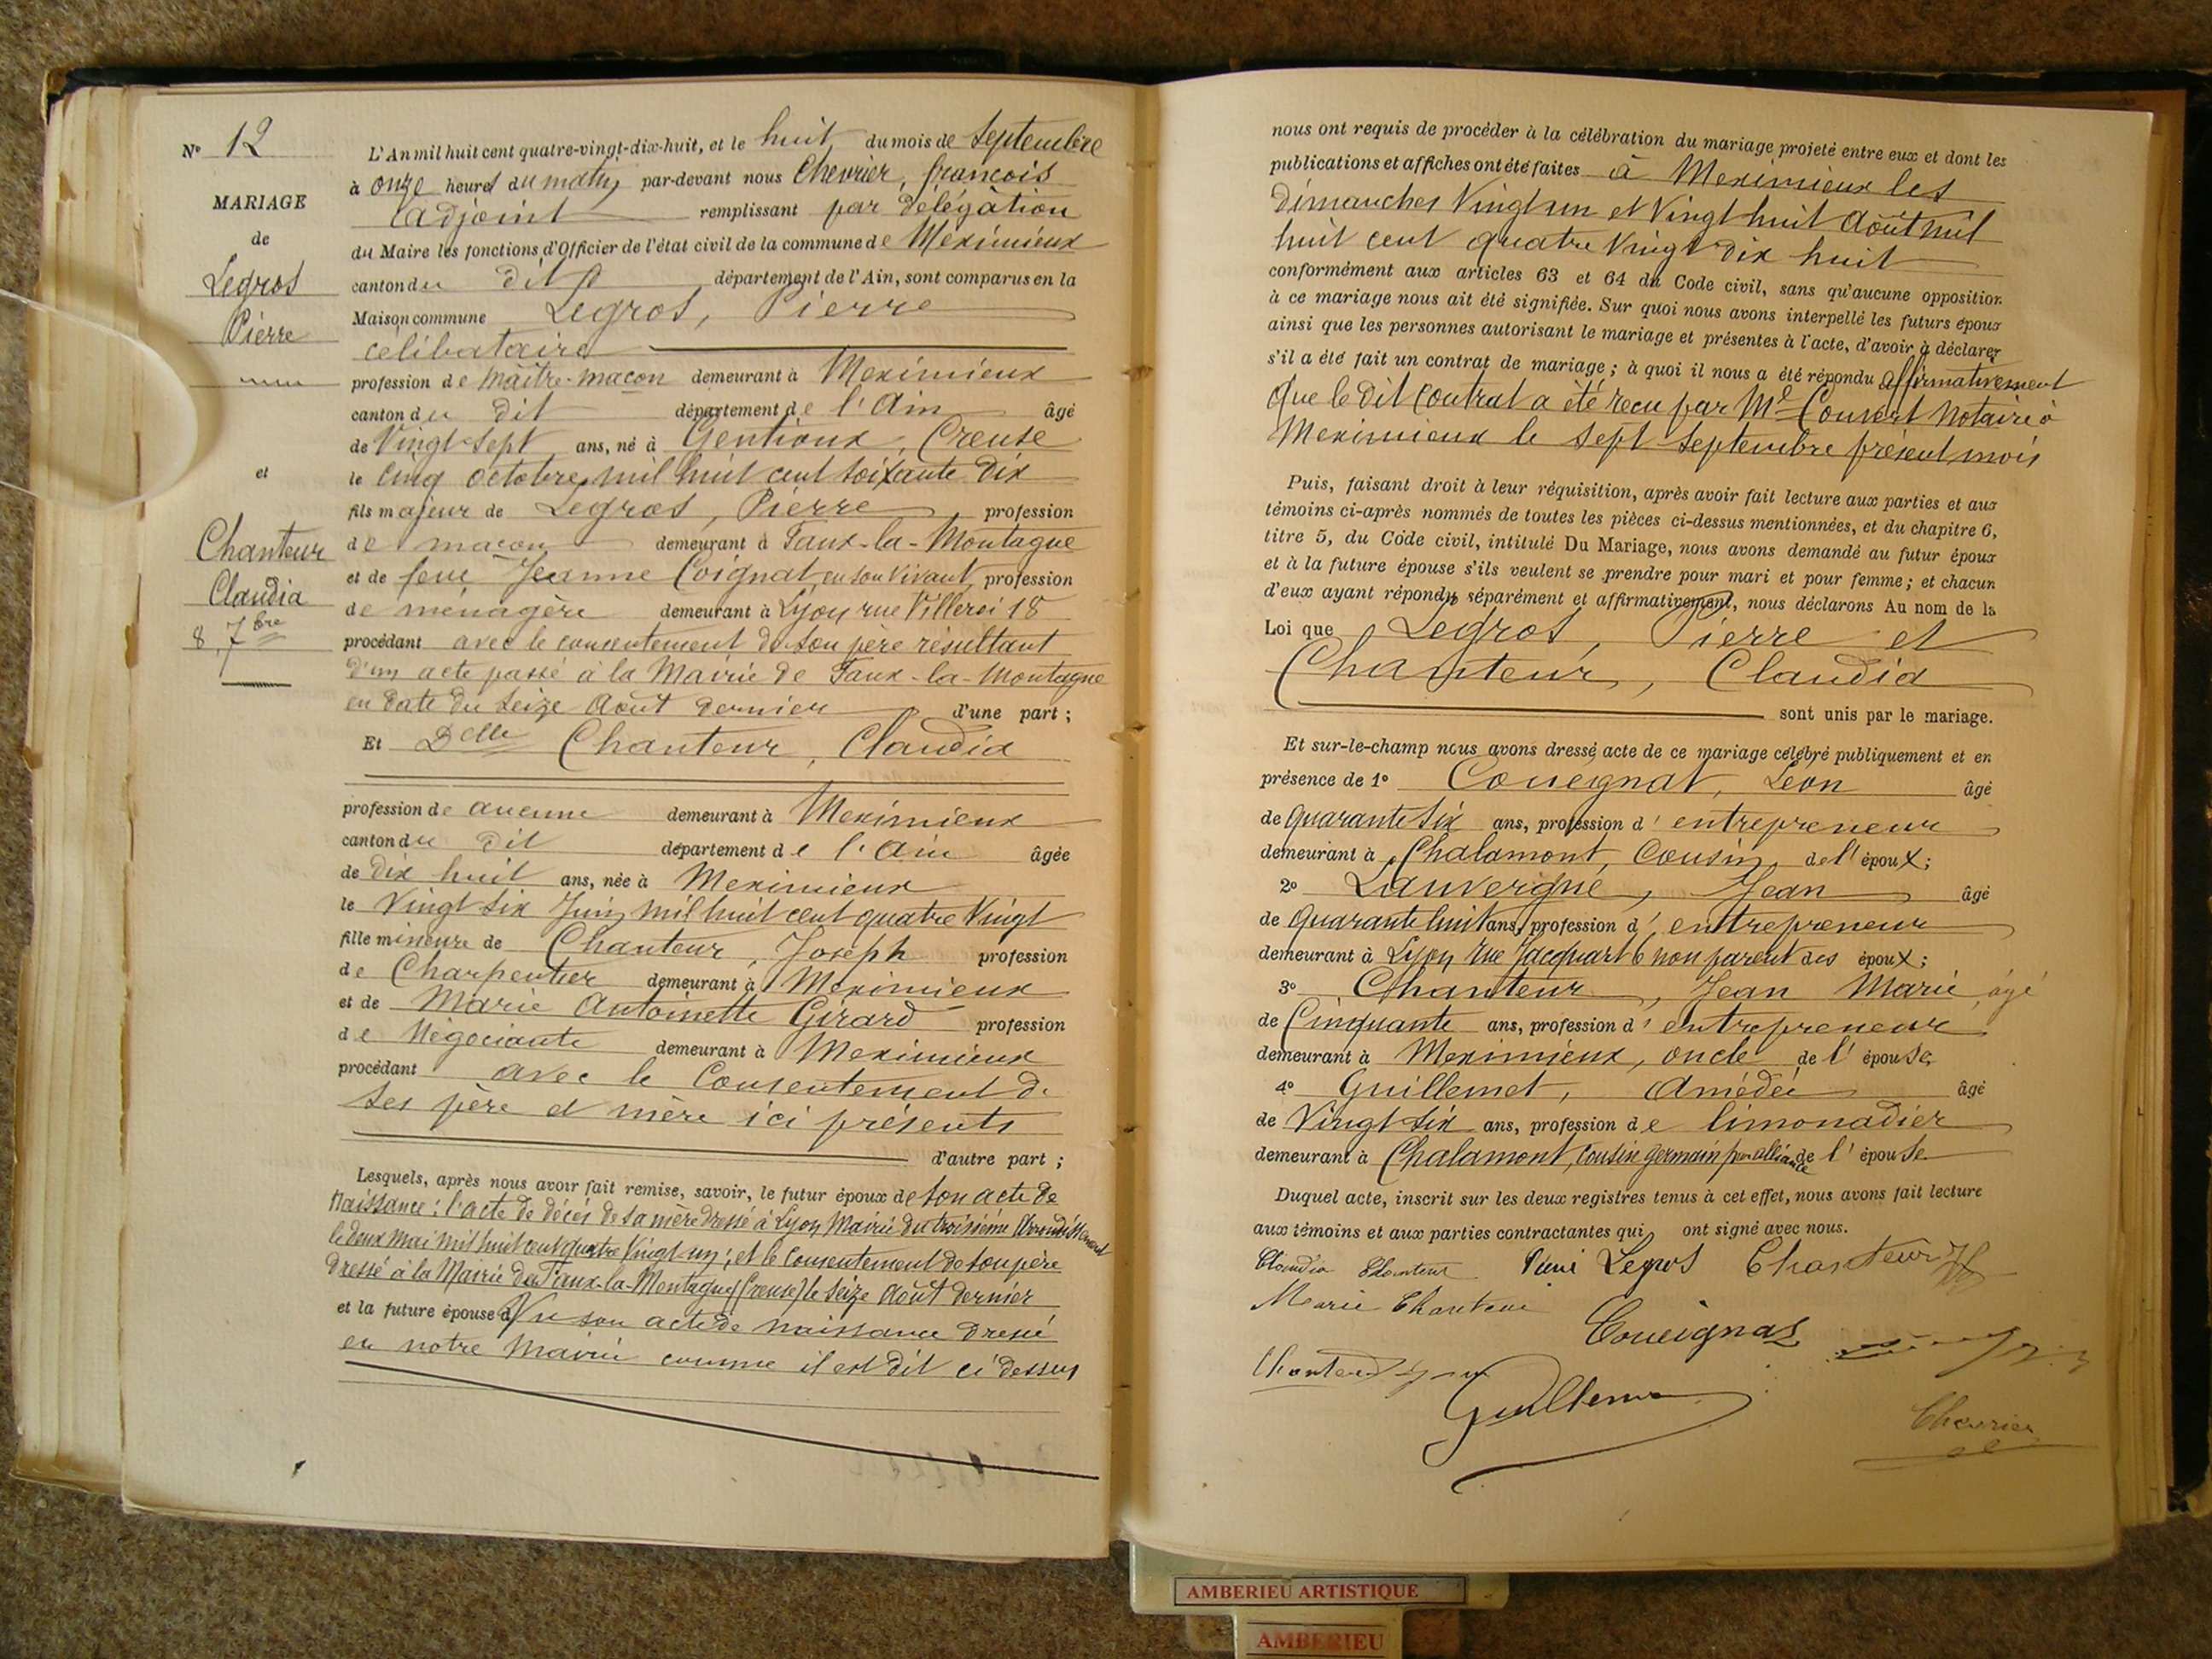 N° 12
MARIAGE
de
Legros
Pierre
et
Chanteur
Claudia
8, 7bre
L'An mil huit cent quatre-vingt-dix-huit, et le huit du mois de Septembre
à onze heures du matin, par-devant nous Chevrier, françois
adjoint remplissant par délégation
du Maire les fonctions d'Officier de l'état civil de la commune de Meximieux
canton du dit département de l'Ain, sont comparus en la
Maison commune Legros, Pierre
celibataire
profession de maître-macon demeurant à Meximieux
canton du dit département de l'Ain âgé
de Vingt sept ans, né à Gentioux, Creuse
le cinq octobre mil huit cent soixante dix
fils majeur de Legros, Pierre profession
de macon demeurant à Faux-la-Montagne
et de feue Jeanne Coignat, en son vivant, profession
de ménagère demeurant à Lyon rue Villeroi 18
procédant avec le consentement de son père résultant
d'un acte passé à la Mairie de Faux-la-Montagne
en date du seize Août dernier d'une part ;
Et Delle Chanteur, Claudia
profession de aucune demeurant à Meximieux
canton du dit département de l'Ain âgée
de dix huit ans, née à Meximieux
le Vingt six Juin mil huit cent quatre Vingt
fille mineure de Chanteur, Joseph profession
de Charpentier demeurant à Meximieux
et de Marie Antoinette Girard profession
de Négociante demeurant à Meximieux
procédant avec le Consentement de
ses père et mère ici présents
d'autre part ;
Lesquels, après nous avoir fait remise, savoir, le futur époux de son acte de
naissance : l'acte de décès de sa mère dressé à Lyon Mairie du troisième Arrondissement
le deux mai mil huit cent quatre Vingt un ; et le consentement de son père
dressé à la Mairie de Faux-la-Montagne (Creuse) le seize Août dernier
et la future épouse Vu son acte de naissance dressé
en notre Mairie comme il est dit ci dessus
nous ont requis de procéder à la célébration du mariage projeté entre eux et dont les
publications et affiches ont été faites à Meximieux les
dimanches Vingt un et Vingt huit Août mil
huit cent quatre Vingt dix huit
conformément aux articles 63 et 64 du Code civil, sans qu'aucune opposition
à ce mariage nous ait été signifiée. Sur quoi nous avons interpellé les futurs époux
ainsi que les personnes autorisant le mariage et présentes à l'acte, d'avoir à déclarer
s'il a été fait un contrat de mariage ; à quoi il nous a été répondu affirmativement
que le dit contrat a été reçu par Me Convert Notaire à
Meximieux le sept septembre présent mois
Puis, faisant droit à leur réquisition, après avoir fait lecture aux parties et aux
témoins ci-après nommés de toutes les pièces ci-dessus mentionnées, et du chapitre 6,
titre 5, du Code civil, intitulé Du Mariage, nous avons demandé au futur époux
et à la future épouse s'ils veulent se prendre pour mari et pour femme ; et chacun
d'eux ayant répondu séparément et affirmativement, nous déclarons Au nom de la
Loi que Legros, Pierre et
Chanteur, Claudia
sont unis par le mariage.
Et sur-le-champ nous avons dressé acte de ce mariage célébré publiquement et en
présence de 1° Coueignat, Leon âgé
de quarante six ans, profession d'entrepreneur
demeurant à Chalamont, Cousin de l'époux ;
2° Lauvergne, Jean âgé
de quarante huit ans, profession d'entrepreneur
demeurant à Lyon rue Jacquart 6 non parent des époux ;
3° Chanteur, Jean Marie âgé
de Cinquante ans, profession d'entrepreneur
demeurant à Meximieux, oncle de l'épouse
4° Guillemet, Amédée âgé
de Vingt six ans, profession de limonadier
demeurant à Chalamont, Cousin germain par alliance de l'épouse
Duquel acte, inscrit sur les deux registres tenus à cet effet, nous avons fait lecture
aux témoins et aux parties contractantes qui ont signé avec nous.
Claudia Chanteur Pierre Legros Chanteur
Marie Chanteur
Coueignas
Chanteur
Chevrier
AMBERIEU ARTISTIQUE
AMBERIEU